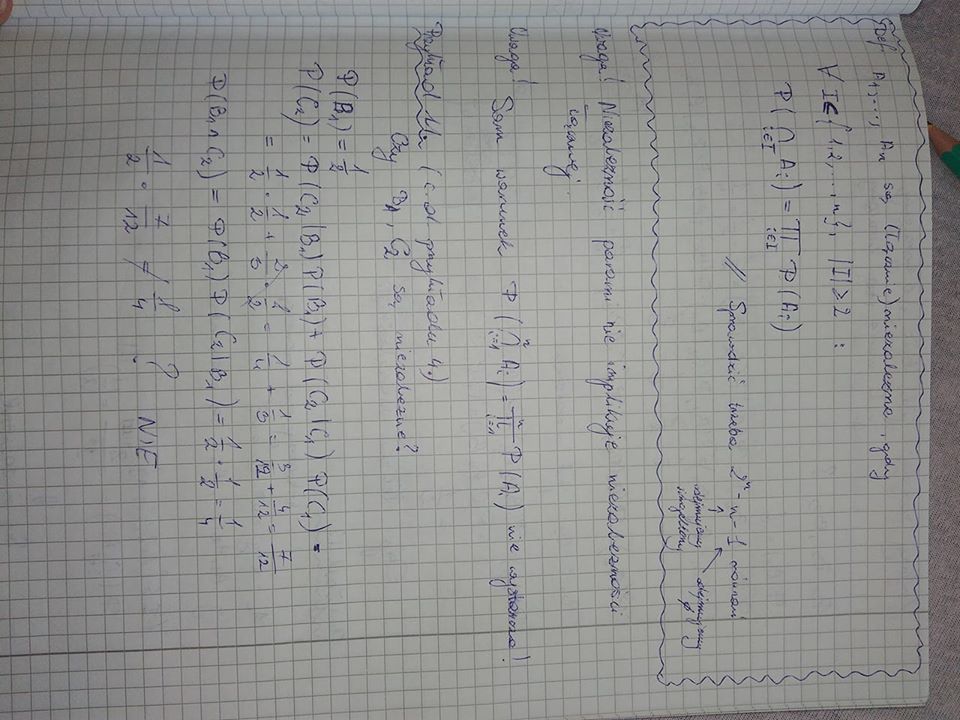 Def A₁,..., Aₙ są (łącznie) niezależne, gdy
∀ I⊆{1,2,...,n}, |I|≥2 :
P(⋂_{i∈I} Aᵢ) = ∏_{i∈I} P(Aᵢ)
// Sprawdzić trzeba 2ⁿ-n-1 równań
odejmujemy singletony
odejmujemy ∅
Uwaga! Niezależność parami nie implikuje niezależności
łącznej.
Uwaga!
Sam warunek P(⋂_{i=1}^{n} Aᵢ) = ∏_{i=1}^{n} P(Aᵢ) nie wystarcza!
Przykład 11. (c.d. przykładu 4.)
Czy B₁, C₂ są niezależne?
P(B₁) = 1/2
P(C₂) = P(C₂|B₁)P(B₁) + P(C₂|C₁) P(C₁) =
= 1/2 · 1/2 + 2/3 · 1/2 = 1/4 + 1/3 = 3/12 + 4/12 = 7/12
P(B₁∩C₂) = P(B₁)P(C₂|B₁) = 1/2 · 1/2 = 1/4
1/2 · 7/12 ≠ 1/4 ? NIE